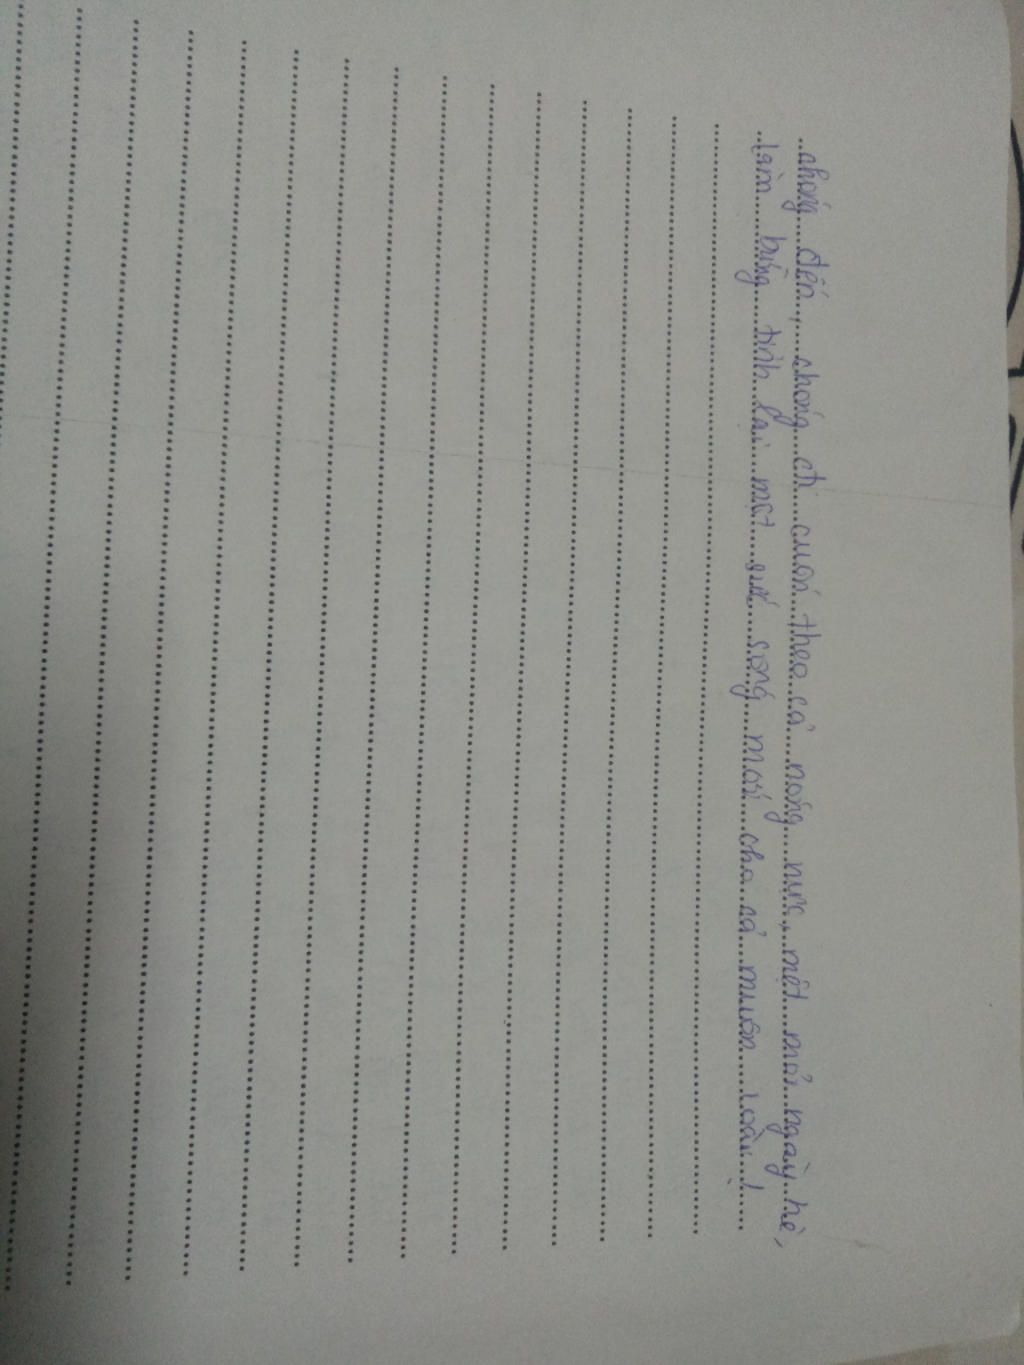 chóng đến, chóng đi cuốn theo cả nóng nực, mệt mỏi ngày hè,
làm bừng tỉnh lại một sức sống mới cho cả muôn loài!